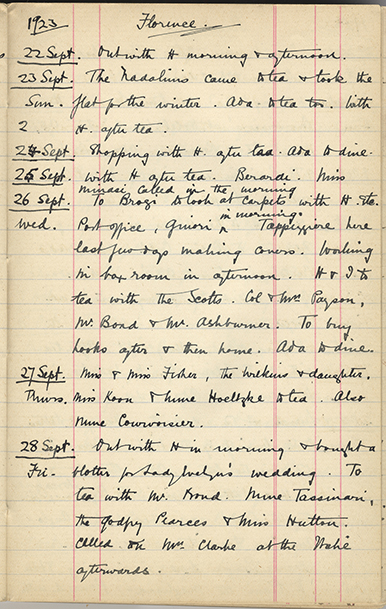 1923 Florence.
22 Sept. Out with H morning & afternoon.
23 Sept. The Nadalinis came to tea & took the
Sun. flat for the winter. Ada to tea too. With
2 H. after tea.
24 Sept. Shopping with H. after tea. Ada to dine.
25 Sept. With H after tea. Berardi. Miss
called in the morning
26 Sept. To Brogi to look at carpets with H etc.
Wed. Post office, Ginori in morning. Tappezziere here
last few days making covers. Working
in box room in afternoon. H & I to
tea with the Scotts. Col & Mrs Payson,
Mr. Bond & Mr. Ashburner. To buy
books after & then home. Ada to dine.
27 Sept. Miss & Miss Fisher, the Wilkins & daughter,
Thurs. Miss Koon & Mme to tea. Also
Mme Courvoisier.
28 Sept. Out with H in morning & bought a
Fri- blotter for Lady Evelyn's wedding. To
tea with Mr. Bond. Mme Tassinari,
the Godfrey Pearces & Miss Hutton.
Called on Mrs Clarke at the
afterwards.